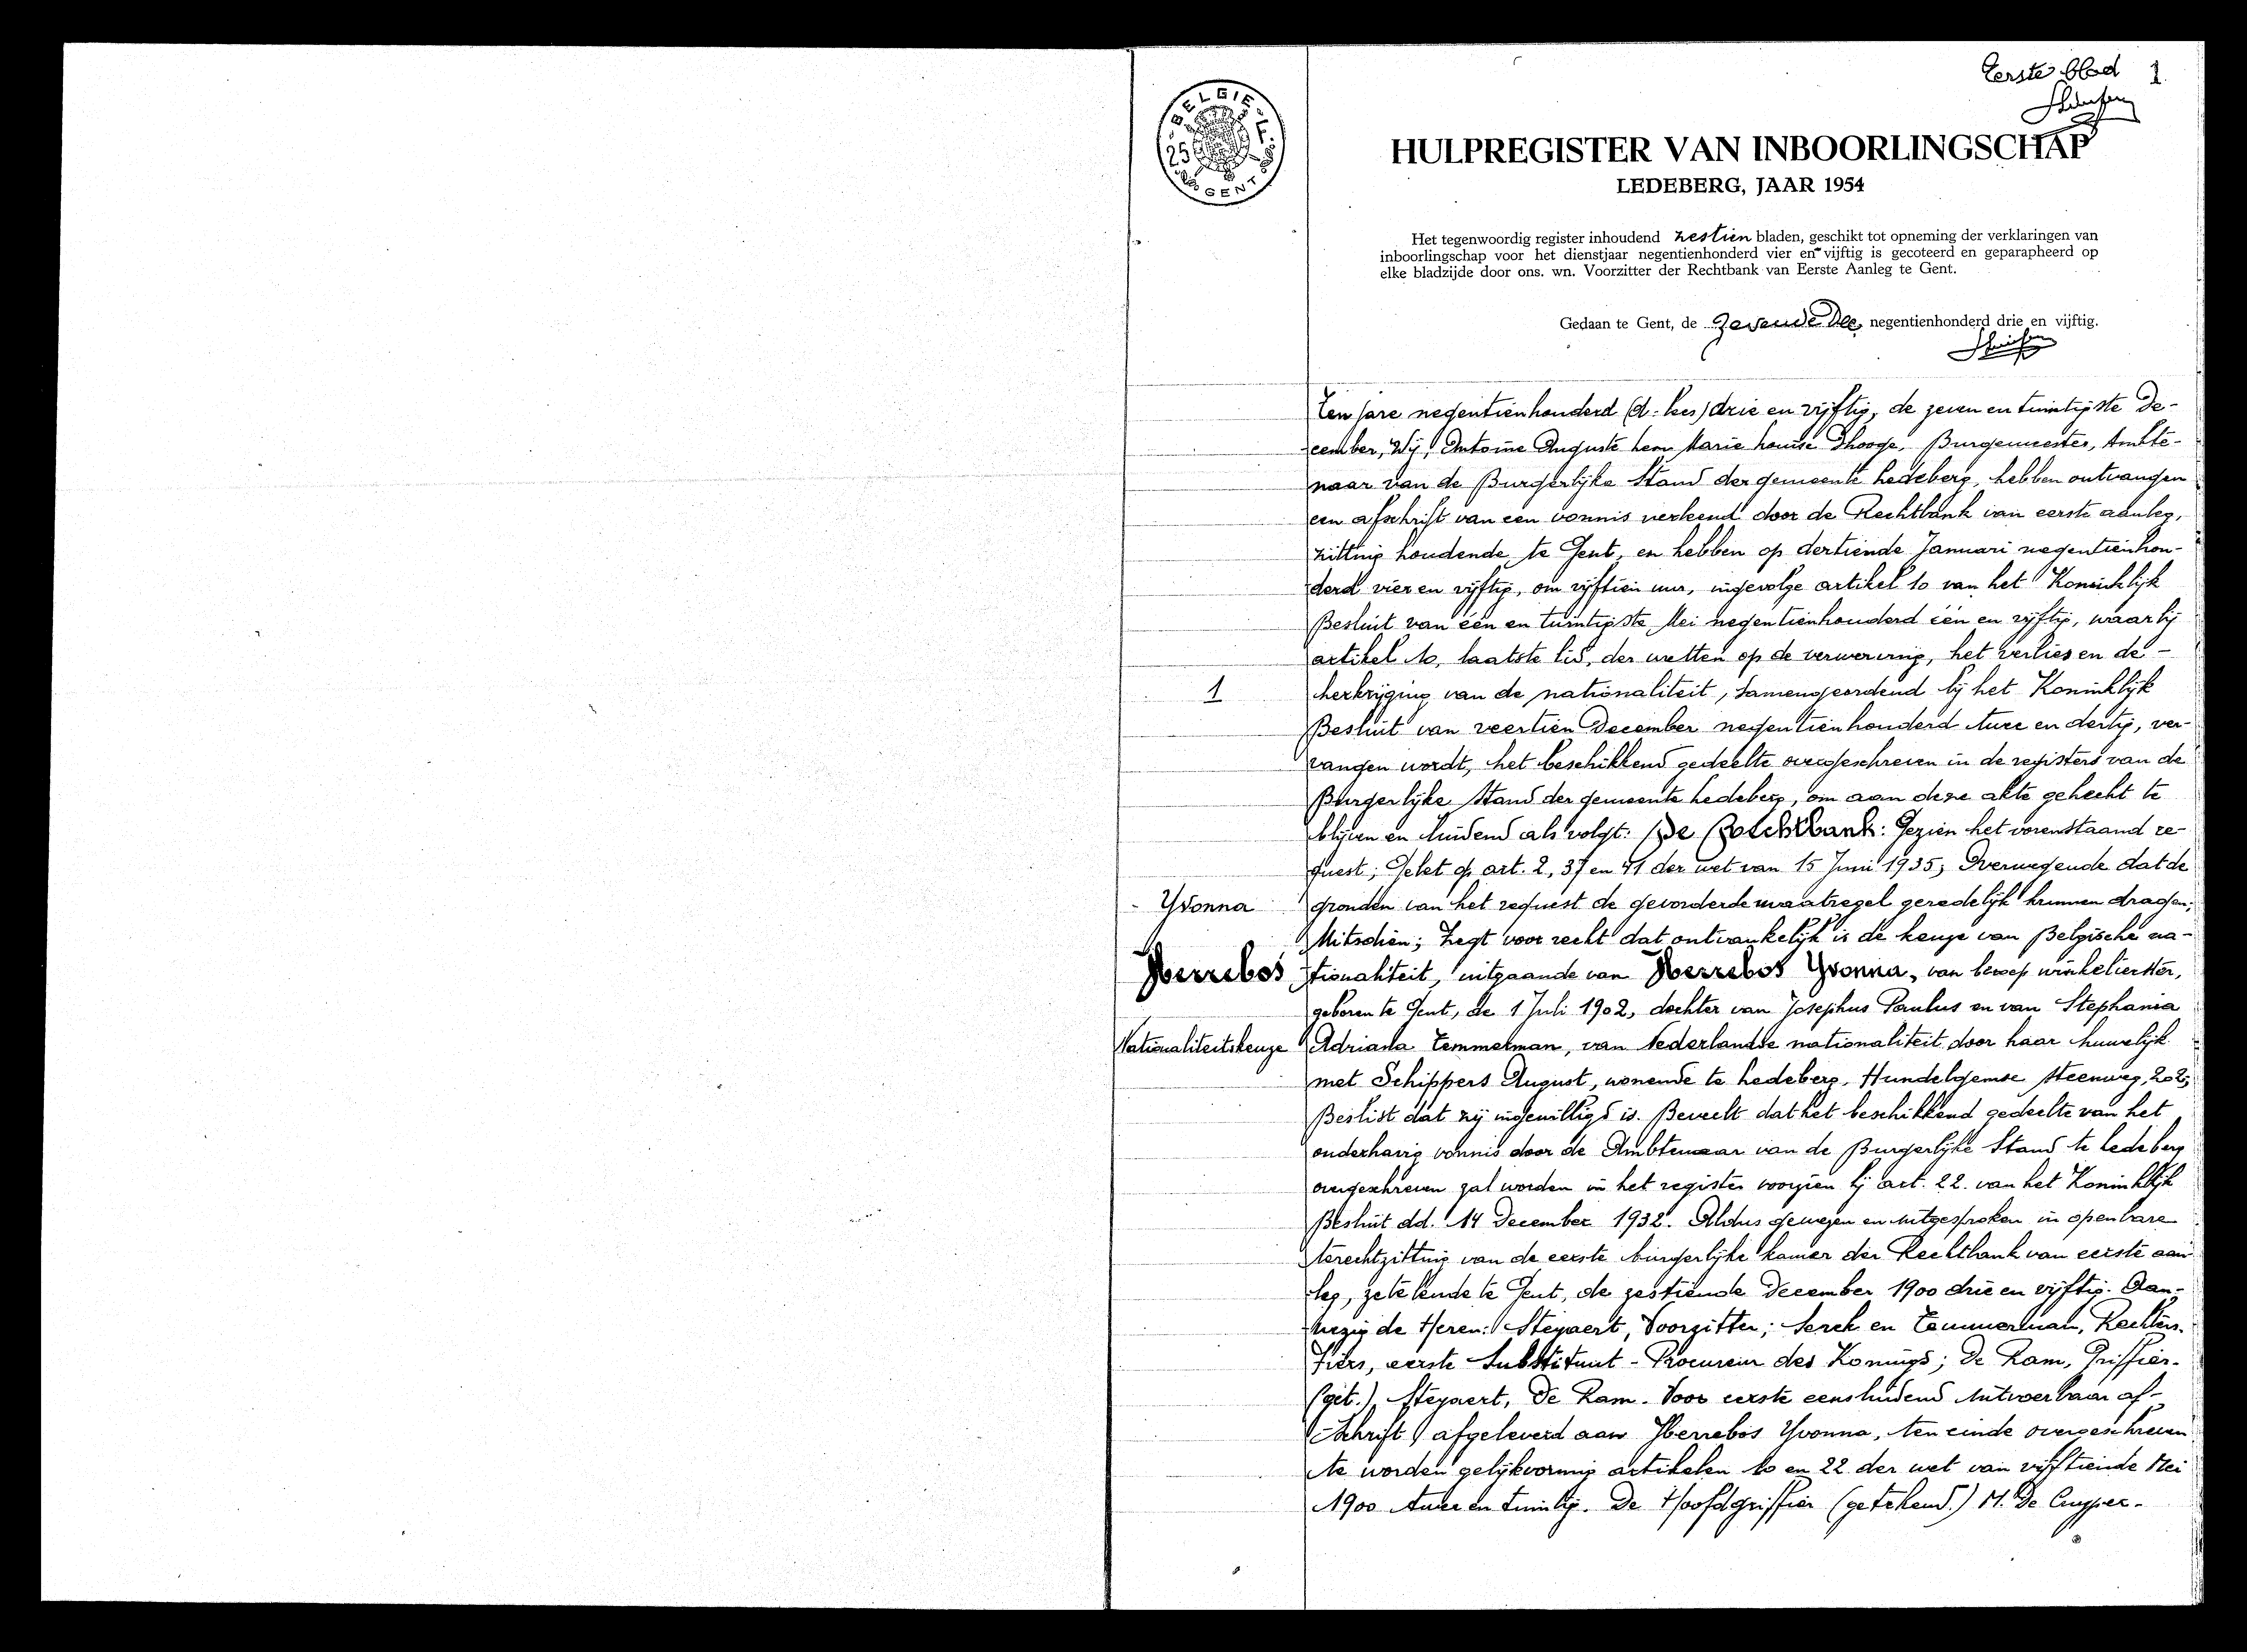 Eerste blad 1
BELGIE
25 F.
GENT
HULPREGISTER VAN INBOORLINGSCHAP
LEDEBERG, JAAR 1954
Het tegenwoordig register inhoudend zestien bladen, geschikt tot opneming der verklaringen van
inboorlingschap voor het dienstjaar negentienhonderd vier en vijftig is gecoteerd en geparapheerd op
elke bladzijde door ons. wn. Voorzitter der Rechtbank van Eerste Aanleg te Gent.
Gedaan te Gent, de Zevende Dec, negentienhonderd drie en vijftig.
Ten jare negentienhonderd drie en vijftig, de zeven en twintigste De-
cember, Wij, Antoine Auguste Marie Louise D'hooge, Burgemeester, Ambte-
naar van de Burgerlijke Stand der gemeente Ledeberg, hebben ontvangen
een afschrift van een vonnis verleend door de Rechtbank van eerste aanleg,
zitting houdende te Gent, en hebben op dertiende Januari negentienhon-
derd vier en vijftig, om vijftien uur, ingevolge artikel 10 van het Koninklijk
Besluit van één en twintigste Mei negentienhonderd één en vijftig, waarbij
artikel 10, laatste lid, der wetten op de verwerving, het verlies en de -
1
herkrijging van de nationaliteit, samengeordend bij het Koninklijk
Besluit van veertien December negentienhonderd twee en dertig, ver-
vangen wordt, het beschikkend gedeelte overgeschreven in de registers van de
Burgerlijke Stand der gemeente Ledeberg, om aan deze akte gehecht te
blijven en luidend als volgt: De Rechtbank: Gezien het vorenstaand re-
quest; Gelet op art. 2, 37 en 41 der wet van 15 Juni 1935; Overwegende dat de
- Yvonna
gronden van het request de gevorderde maatregel geredelijk kunnen dragen;
Mitsdien; Zegt voor recht dat ontvankelijk is de keuze van Belgische na-
Herrebos
tionaliteit, uitgaande van Herrebos Yvonna, van beroep winkelierster,
geboren te Gent, de 1 Juli 1902, dochter van Josephus Paulus en van Stephania
Nationaliteitskeuze
Adriana Temmerman, van Nederlandse nationaliteit door haar huwelijk
met Schippers August, wonende te Ledeberg, Hundelgemse steenweg, 202;
Beslist dat zij ingewilligd is. Beveelt dat het beschikkend gedeelte van het
onderhavig vonnis door de Ambtenaar van de Burgerlijke Stand te Ledeberg
overgeschreven zal worden in het register voorzien bij art. 22. van het Koninklijk
Besluit dd. 14 December 1932. Aldus gewezen en uitgesproken in openbare
terechtzitting van de eerste burgerlijke kamer der Rechtbank van eerste aan-
leg, zetelende te Gent, de zestiende December 1900 drie en vijftig. Aan-
wezig de Heren: Steyaert, Voorzitter; Serck en Temmerman, Rechters.
Fiers, eerste Substituut - Procureur des Konings; De Ram, Griffier.
(get.) Steyaert, De Ram. Voor eerste eensluidend uitvoerbaar af-
schrift afgeleverd aan Herrebos Yvonna, ten einde overgeschreven
te worden gelijkvormig artikelen 10 en 22 der wet van vijftiende Mei
1900 twee en twintig. De Hoofdgriffier (getekend.) M. De Cuyper.